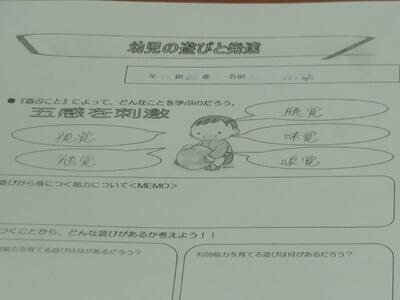 幼児の遊びと発達
年 組 番 名前
●『遊ぶこと』によって、どんなことを学ぶのだろう。
五感を刺激
聴覚
視覚
味覚
触覚
嗅覚
遊びから身につく能力について<MEMO>
つくことから、どんな遊びがあるか考えよう！！
的能力を育てる遊びは何があるだろう？
知的能力を育てる遊びは何があるだろう？